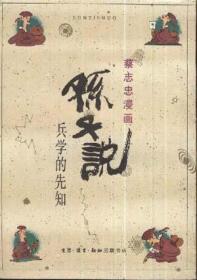 SUNZISHUO
蔡志忠漫画
孙子说
兵学的先知
生活·读书·新知三联书店